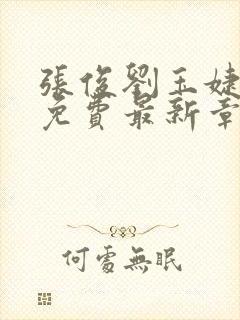 張俊劉玉婕
免費最新章
何處無眠